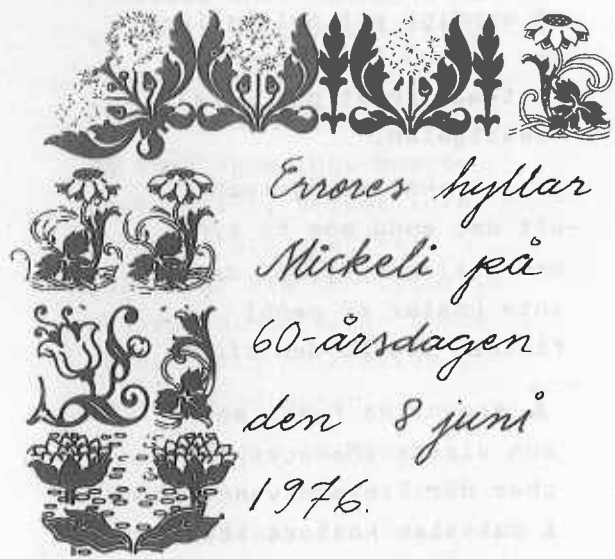 Errores hyllar
Mickeli på
60-årsdagen
den 8 juni
1976.